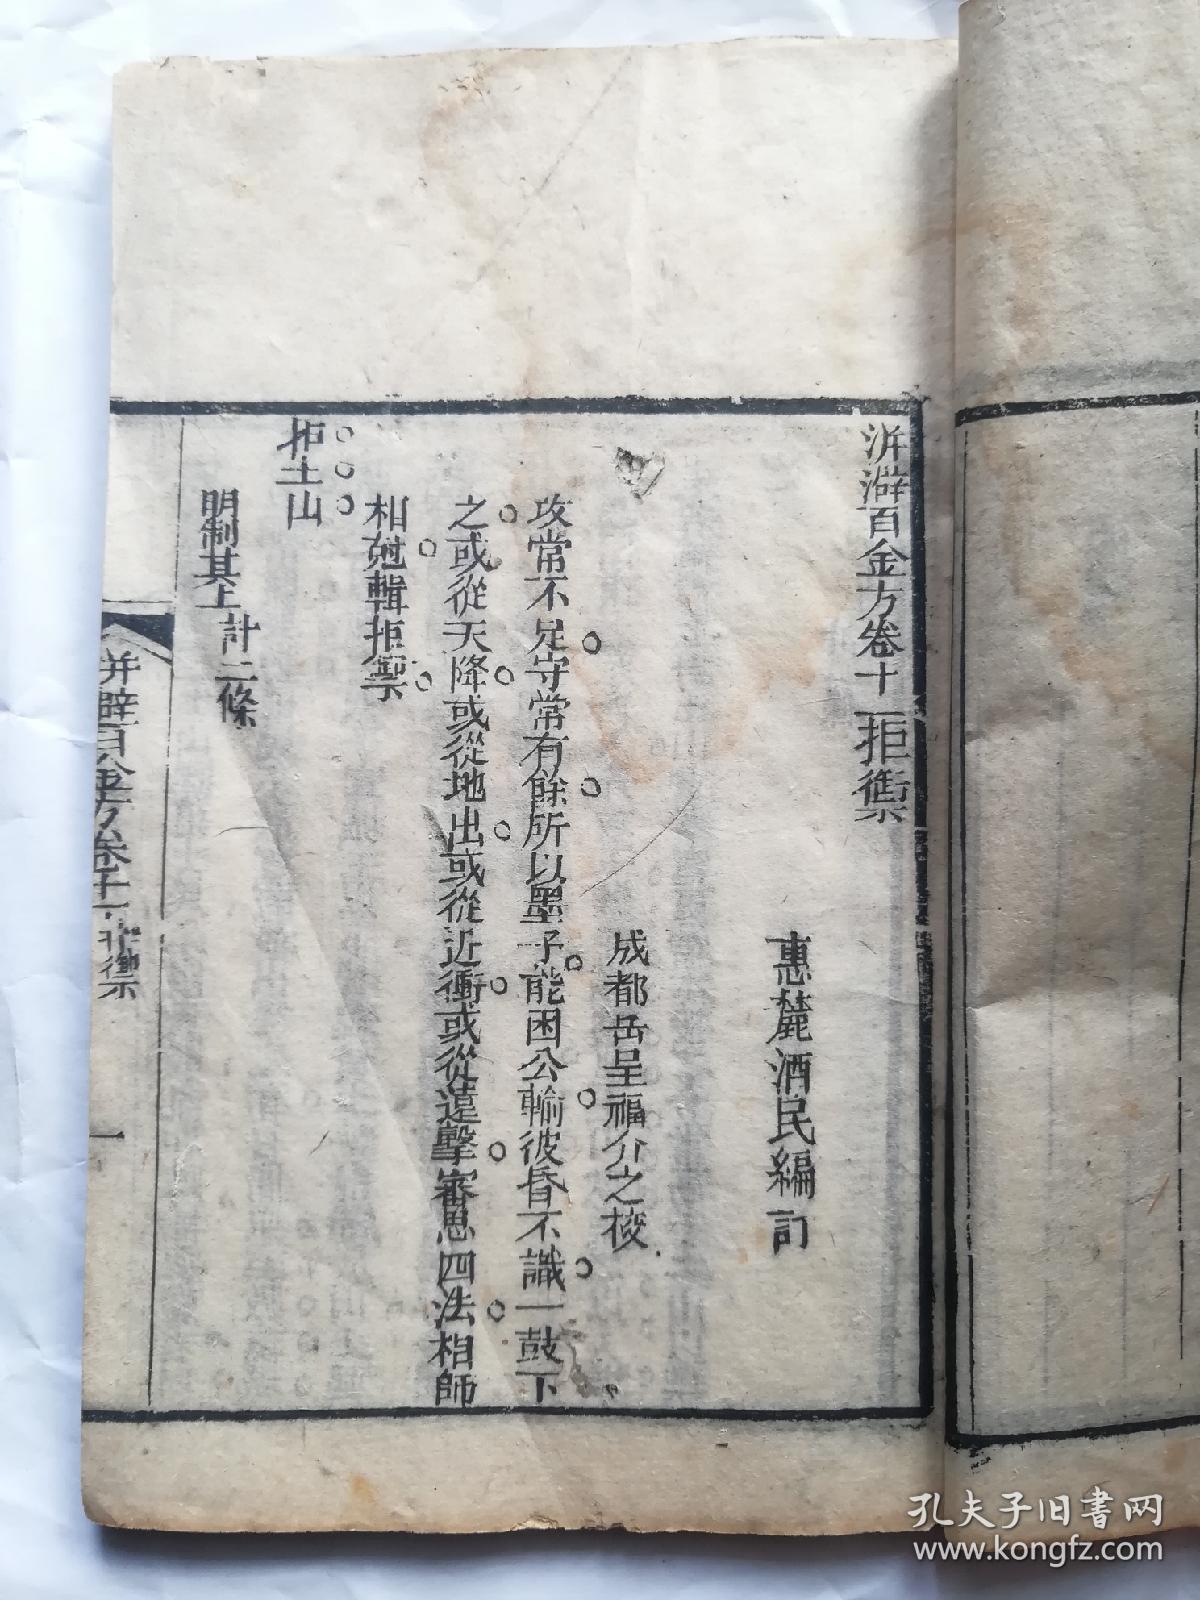 洴澼百金方卷十一拒禦
惠麓酒民編訂
成都岳呈福介之校
攻常不足守常有餘所以墨子能困公輸彼昏不識一鼓下
之或從天降或從地出或從近衝或從遠擊審思四法相師
相尅輯拒禦
拒土山
明制其上計二條
洴澼百金方卷十一拒禦
一
孔夫子旧书网
www.kongfz.com